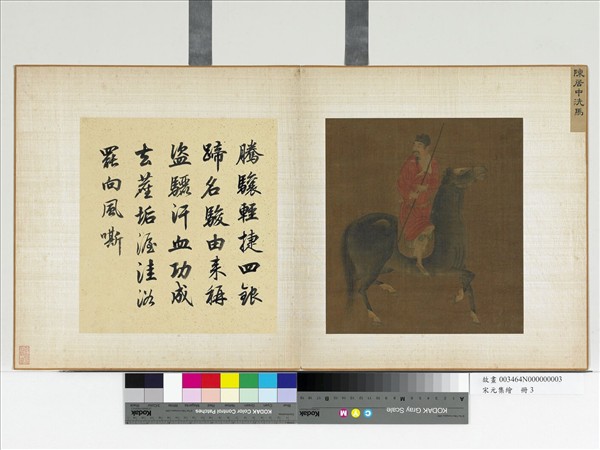 陳居中洗馬
騰驤輕捷四銀
蹄名駿由来稱
盜驪汗血功成
去塵垢渥洼浴
罷向風嘶
故畫 003464N000000003
宋元集繪 冊 3
KODAK Color Control Patches
KODAK Gray Scale
C Y M